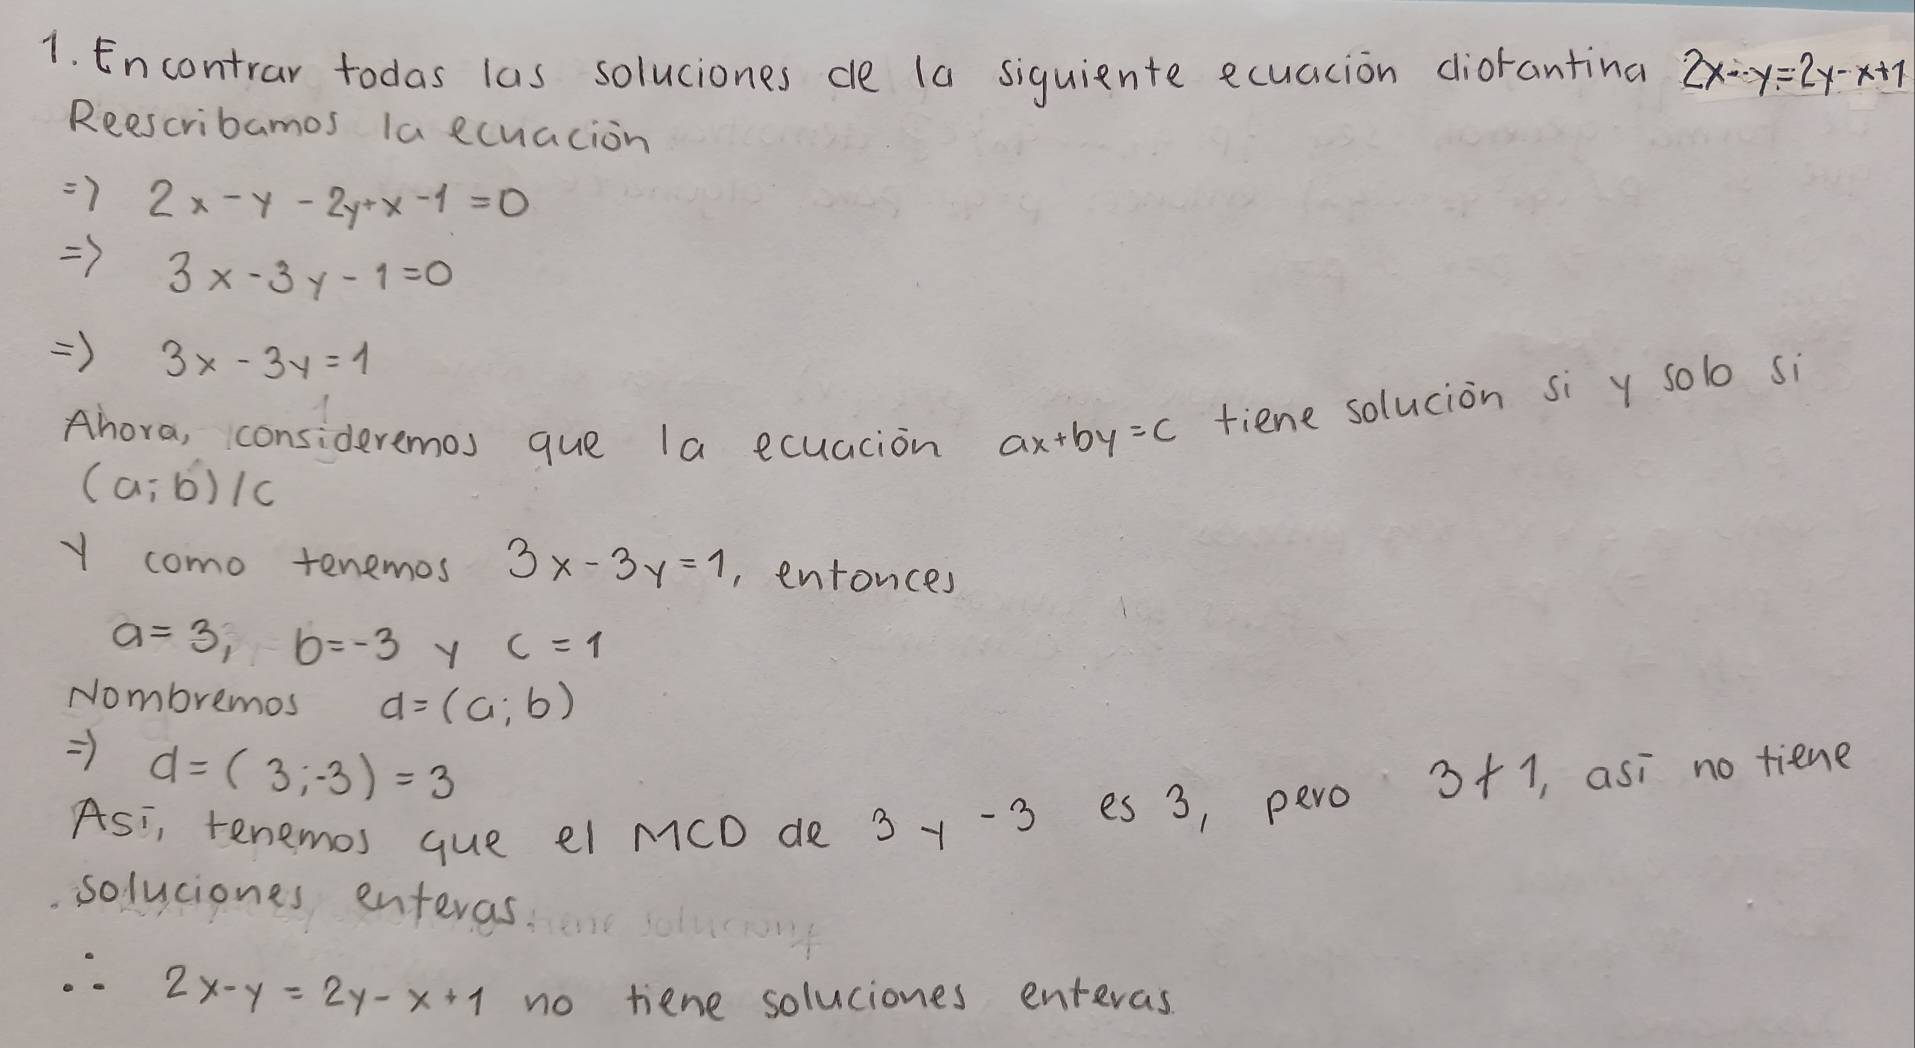 1. Encontrar todas las soluciones de la siguiente ecuación diofantina 2x-y=2y-x+1
Reescribamos la ecuación
=> 2x-y-2y+x-1=0
=> 3x-3y-1=0
=> 3x-3y=1
Ahora, consideremos que la ecuación ax+by=c tiene solución si y solo si
(a;b)/c
Y como tenemos 3x-3y=1, entonces
a=3, b=-3 y c=1
Nombremos d=(a;b)
=> d=(3;-3)=3
Así, tenemos que el MCD de 3 y -3 es 3, pero 3∤1, así no tiene
soluciones enteras.
∴ 2x-y=2y-x+1 no tiene soluciones enteras.